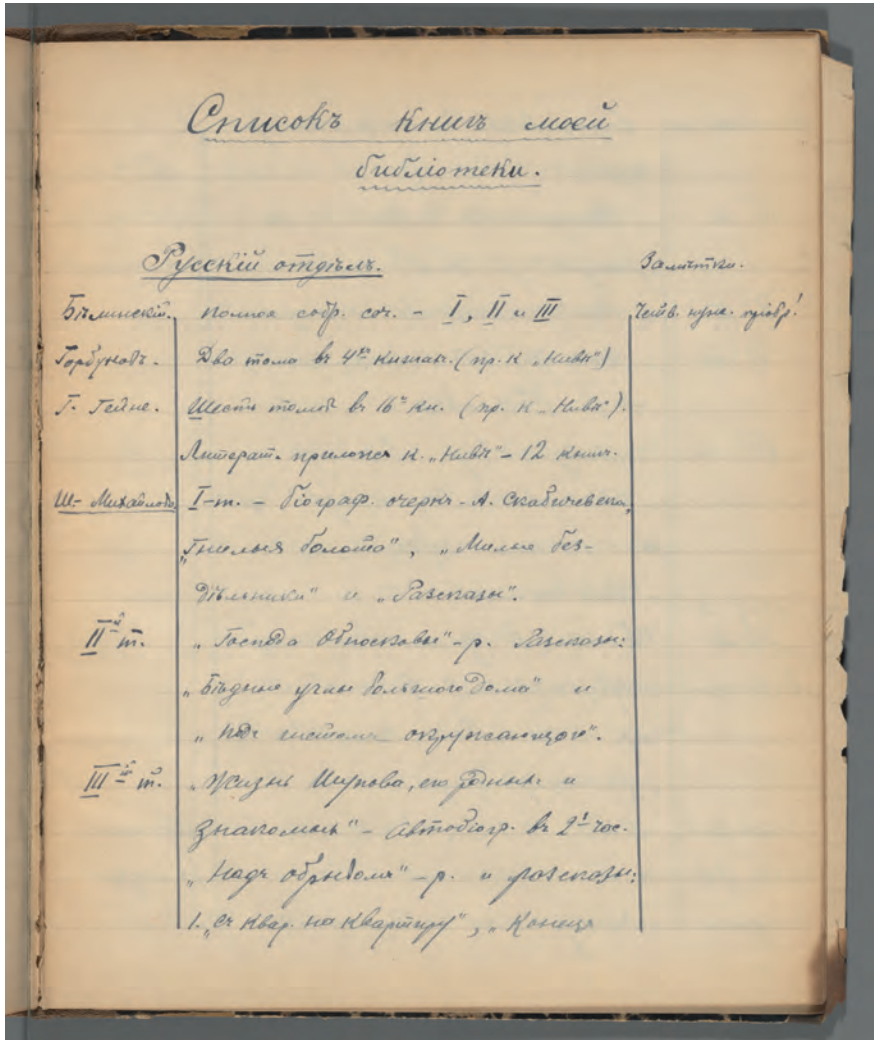 Списокъ книгъ моей
библіотеки.
Русскій отдѣлъ.
Замѣтки.
Бѣлинскій. Полное собр. соч. - I, II и III Четв. нужн. пріобр!
Горбуновъ. Два тома въ 4ⁿ книгахъ. (пр. к „Нивѣ")
Г. Гейне. Шесть томовъ въ 16ⁿ кн. (пр. к „Нивѣ").
Литерат. прилож к. „Нивѣ" - 12 книгъ.
Ш- Михайловъ. I-т. - біограф. очеркъ - А. Скабичевска,
„Гнилыя болота", „Милые без-
дѣльники" и „Разсказы".
IIй т. „Господа Обносковы" - р. Разсказы:
„Бѣдные углы большого дома" и
„Подъ окружающаго".
IIIй т. „Жизнь Шупова, его родныхъ и
знакомыхъ" - автобіогр. въ 2х час.
„Надъ обрывомъ" - р. и разсказы:
1. „Съ квар. на квартиру", „Конецъ